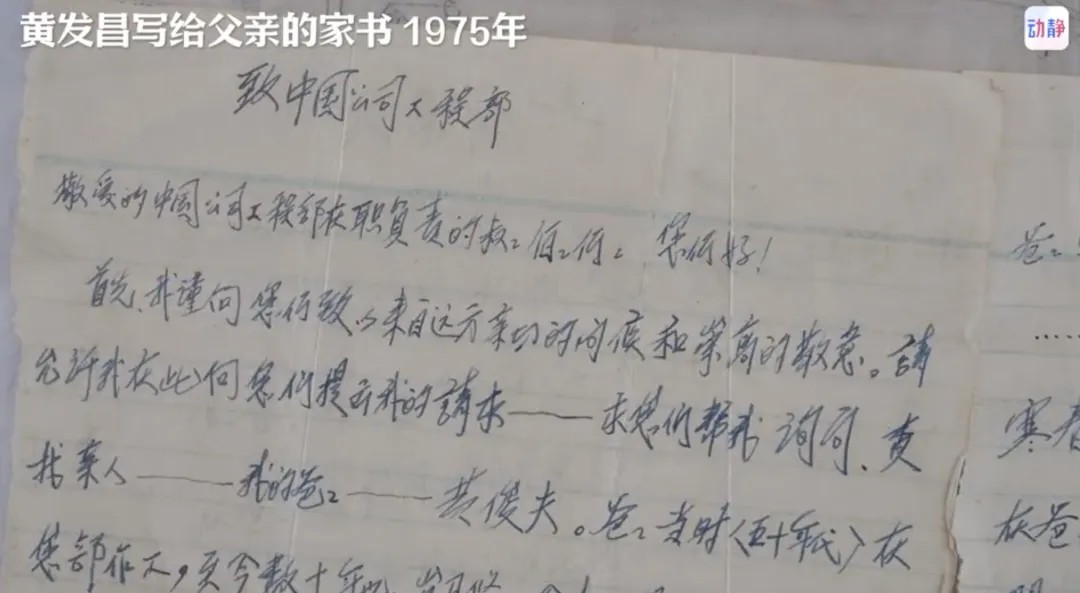 黄发昌写给父亲的家书 1975年
动静
致中国公司工程部
敬爱的中国公司工程部在职负责的叔〻伯〻们〻 您们好!
首先,我谨向您们致以来自远方亲切的问候和崇高的敬意。請
允许我在此向您们提示我的請求——求您们帮我询问、查
找亲人——我的爸〻——黄俊夫。爸〻当时〈五十年代〉在
您部作工,至今数十年
爸〻
……
寒
在爸